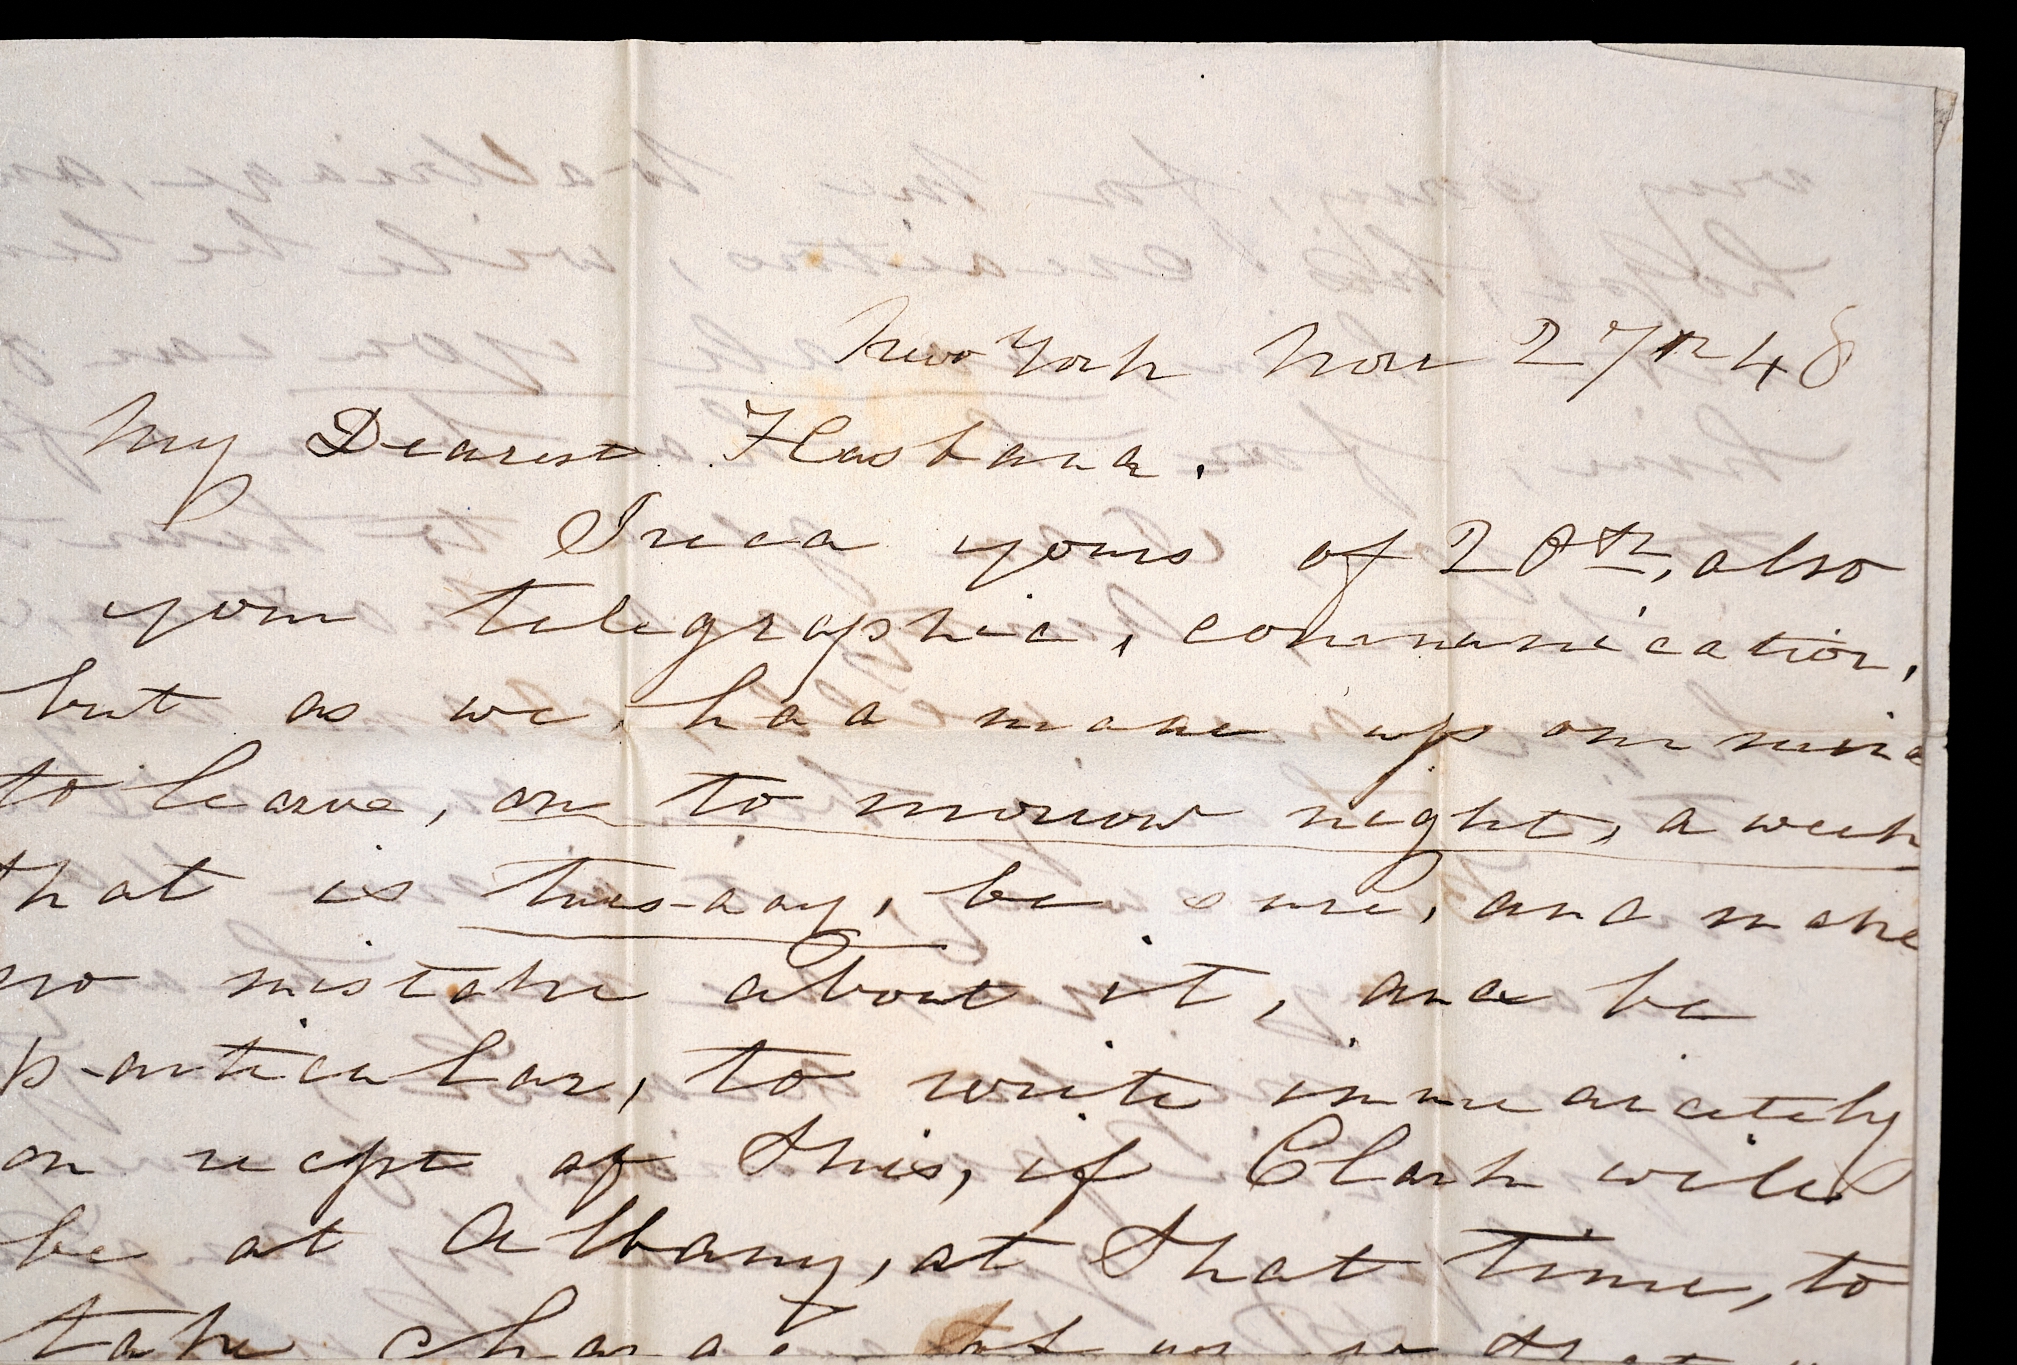 New York Nov 27th 48
My Dearest Husband.
I recd yours of 20th, also
your telegraphic, communication,
but as we had made up our mind
to leave, on to morrow night, a week
that is tues-day, be sure, and make
no mistake about it, and be
particular, to write immediately
on recpt of this, if Clark will
be at Albany, at that time, to
take charge of us